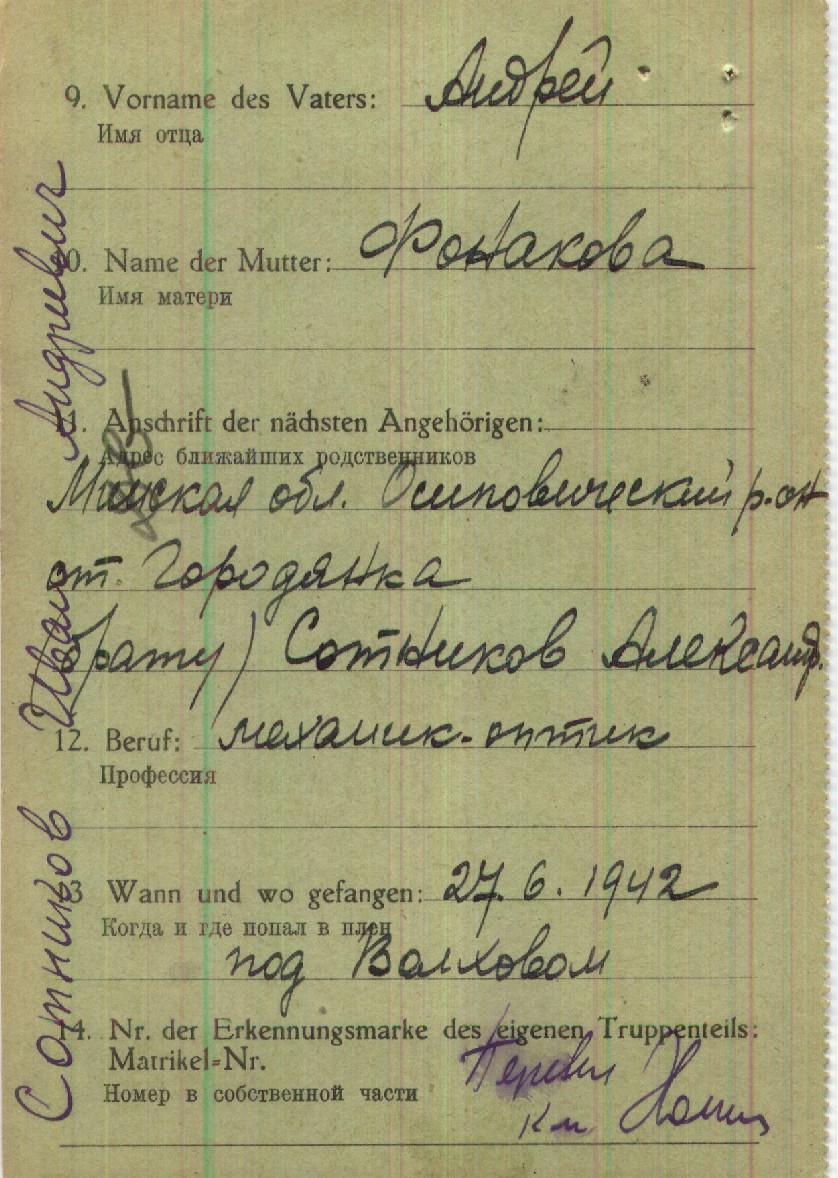 9. Vorname des Vaters: Андрей
Имя отца
10. Name der Mutter: Фонакова
Имя матери
11. Anschrift der nächsten Angehörigen:
Адрес ближайших родственников
Минская обл. Осиповический р-он
ст. Городянка
брату) Сотников Александ.
12. Beruf: механик-оптик
Профессия
13 Wann und wo gefangen: 27.6.1942
Когда и где попал в плен
под Волховом
14. Nr. der Erkennungsmarke des eigenen Truppenteils:
Matrikel=Nr.
Номер в собственной части
Сотников Иван Андреевич